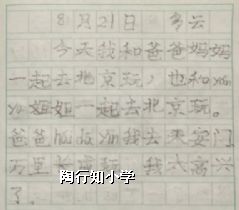 8月21日 多云
今天我和爸爸妈妈
一起去北京玩，也和
姐姐一起去北京玩。
爸爸 我去天安门
万里长城玩 我太高兴
了。
陶行知小学